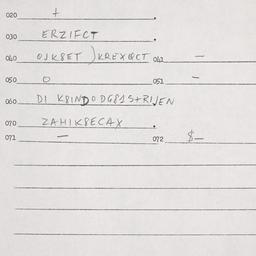 020 +
030 ERZIFCT
040 OJK8ET )KREXQCT 041 —
050 O 051 —
060 DI K8INDO DG81S+RIJEN
070 ZAHIK8ECAX
071 — 072 $—